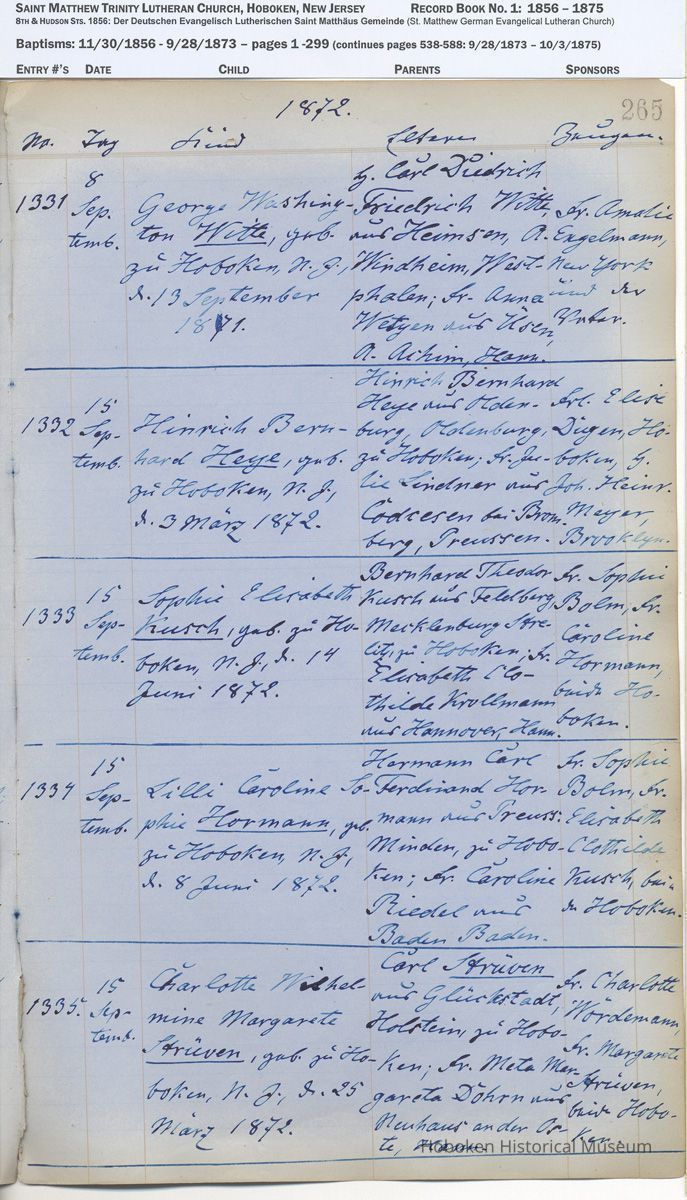 SAINT MATTHEW TRINITY LUTHERAN CHURCH, HOBOKEN, NEW JERSEY RECORD BOOK NO. 1: 1856 – 1875
8TH & HUDSON STS. 1856: Der Deutschen Evangelisch Lutherischen Saint Matthäus Gemeinde (St. Matthew German Evangelical Lutheran Church)
Baptisms: 11/30/1856 - 9/28/1873 – pages 1 -299 (continues pages 538-588: 9/28/1873 – 10/3/1875)
ENTRY #'S DATE CHILD PARENTS SPONSORS
1872. 265
No. Tag Kind Eltern Zeugen.
1331
8
Sep-
temb.
George Washing-
ton Witte, geb.
zu Hoboken, N. J.,
d. 13 September
1871.
H. Carl Diedrich
Friedrich Witte,
aus Heimsen, A.
Windheim, West-
phalen; Fr. Anna
Wetjen aus Üsen,
A. Achim, Hann.
Fr. Amalie
Engelmann,
New York
und der
Vater.
1332
15
Sep-
temb.
Hinrich Bern-
hard Heye, geb.
zu Hoboken, N. J.,
d. 3 März 1872.
Hinrich Bernhard
Heye aus Olden-
burg, Oldenburg,
zu Hoboken; Fr. Ju-
lie Lindner aus
bei Brom-
berg, Preussen.
Frl. Elise
Dügen, Ho-
boken, H.
Joh. Heinr.
Meyer,
Brooklyn.
1333
15
Sep-
temb.
Sophie Elisabeth
Kusch, geb. zu Ho-
boken, N. J., d. 14
Juni 1872.
Bernhard Theodor
Kusch aus Feldberg,
Mecklenburg Stre-
litz, zu Hoboken; Fr.
Elisabeth Clo-
thilde Krollmann
aus Hannover, Hann.
Fr. Sophie
Bolm, Fr.
Caroline
Hormann,
beide Ho-
boken.
1334
15
Sep-
temb.
Lilli Caroline So-
phie Hormann, geb.
zu Hoboken, N. J.,
d. 8 Juni 1872.
Hermann Carl
Ferdinand Hor-
mann aus Preuss:
Minden, zu Hobo-
ken; Fr. Caroline
Riedel aus
Baden Baden.
Fr. Sophie
Bolm, Fr.
Elisabeth
Clothilde
Kusch, bei-
de Hoboken.
1335.
15
Sep-
temb.
Charlotte Wilhel
mine Margarete
Strüven, geb. zu Ho-
boken, N. J., d. 25
März 1872.
Carl Strüven
aus Glückstadt,
Holstein, zu Hobo-
ken; Fr. Meta Mar-
gareta Döhrn aus
Neuhaus an der Os-
te, Hann.
Fr. Charlotte
Wördemann,
Fr. Margarete
Strüven,
beide Hobo-
ken.
Hoboken Historical Museum